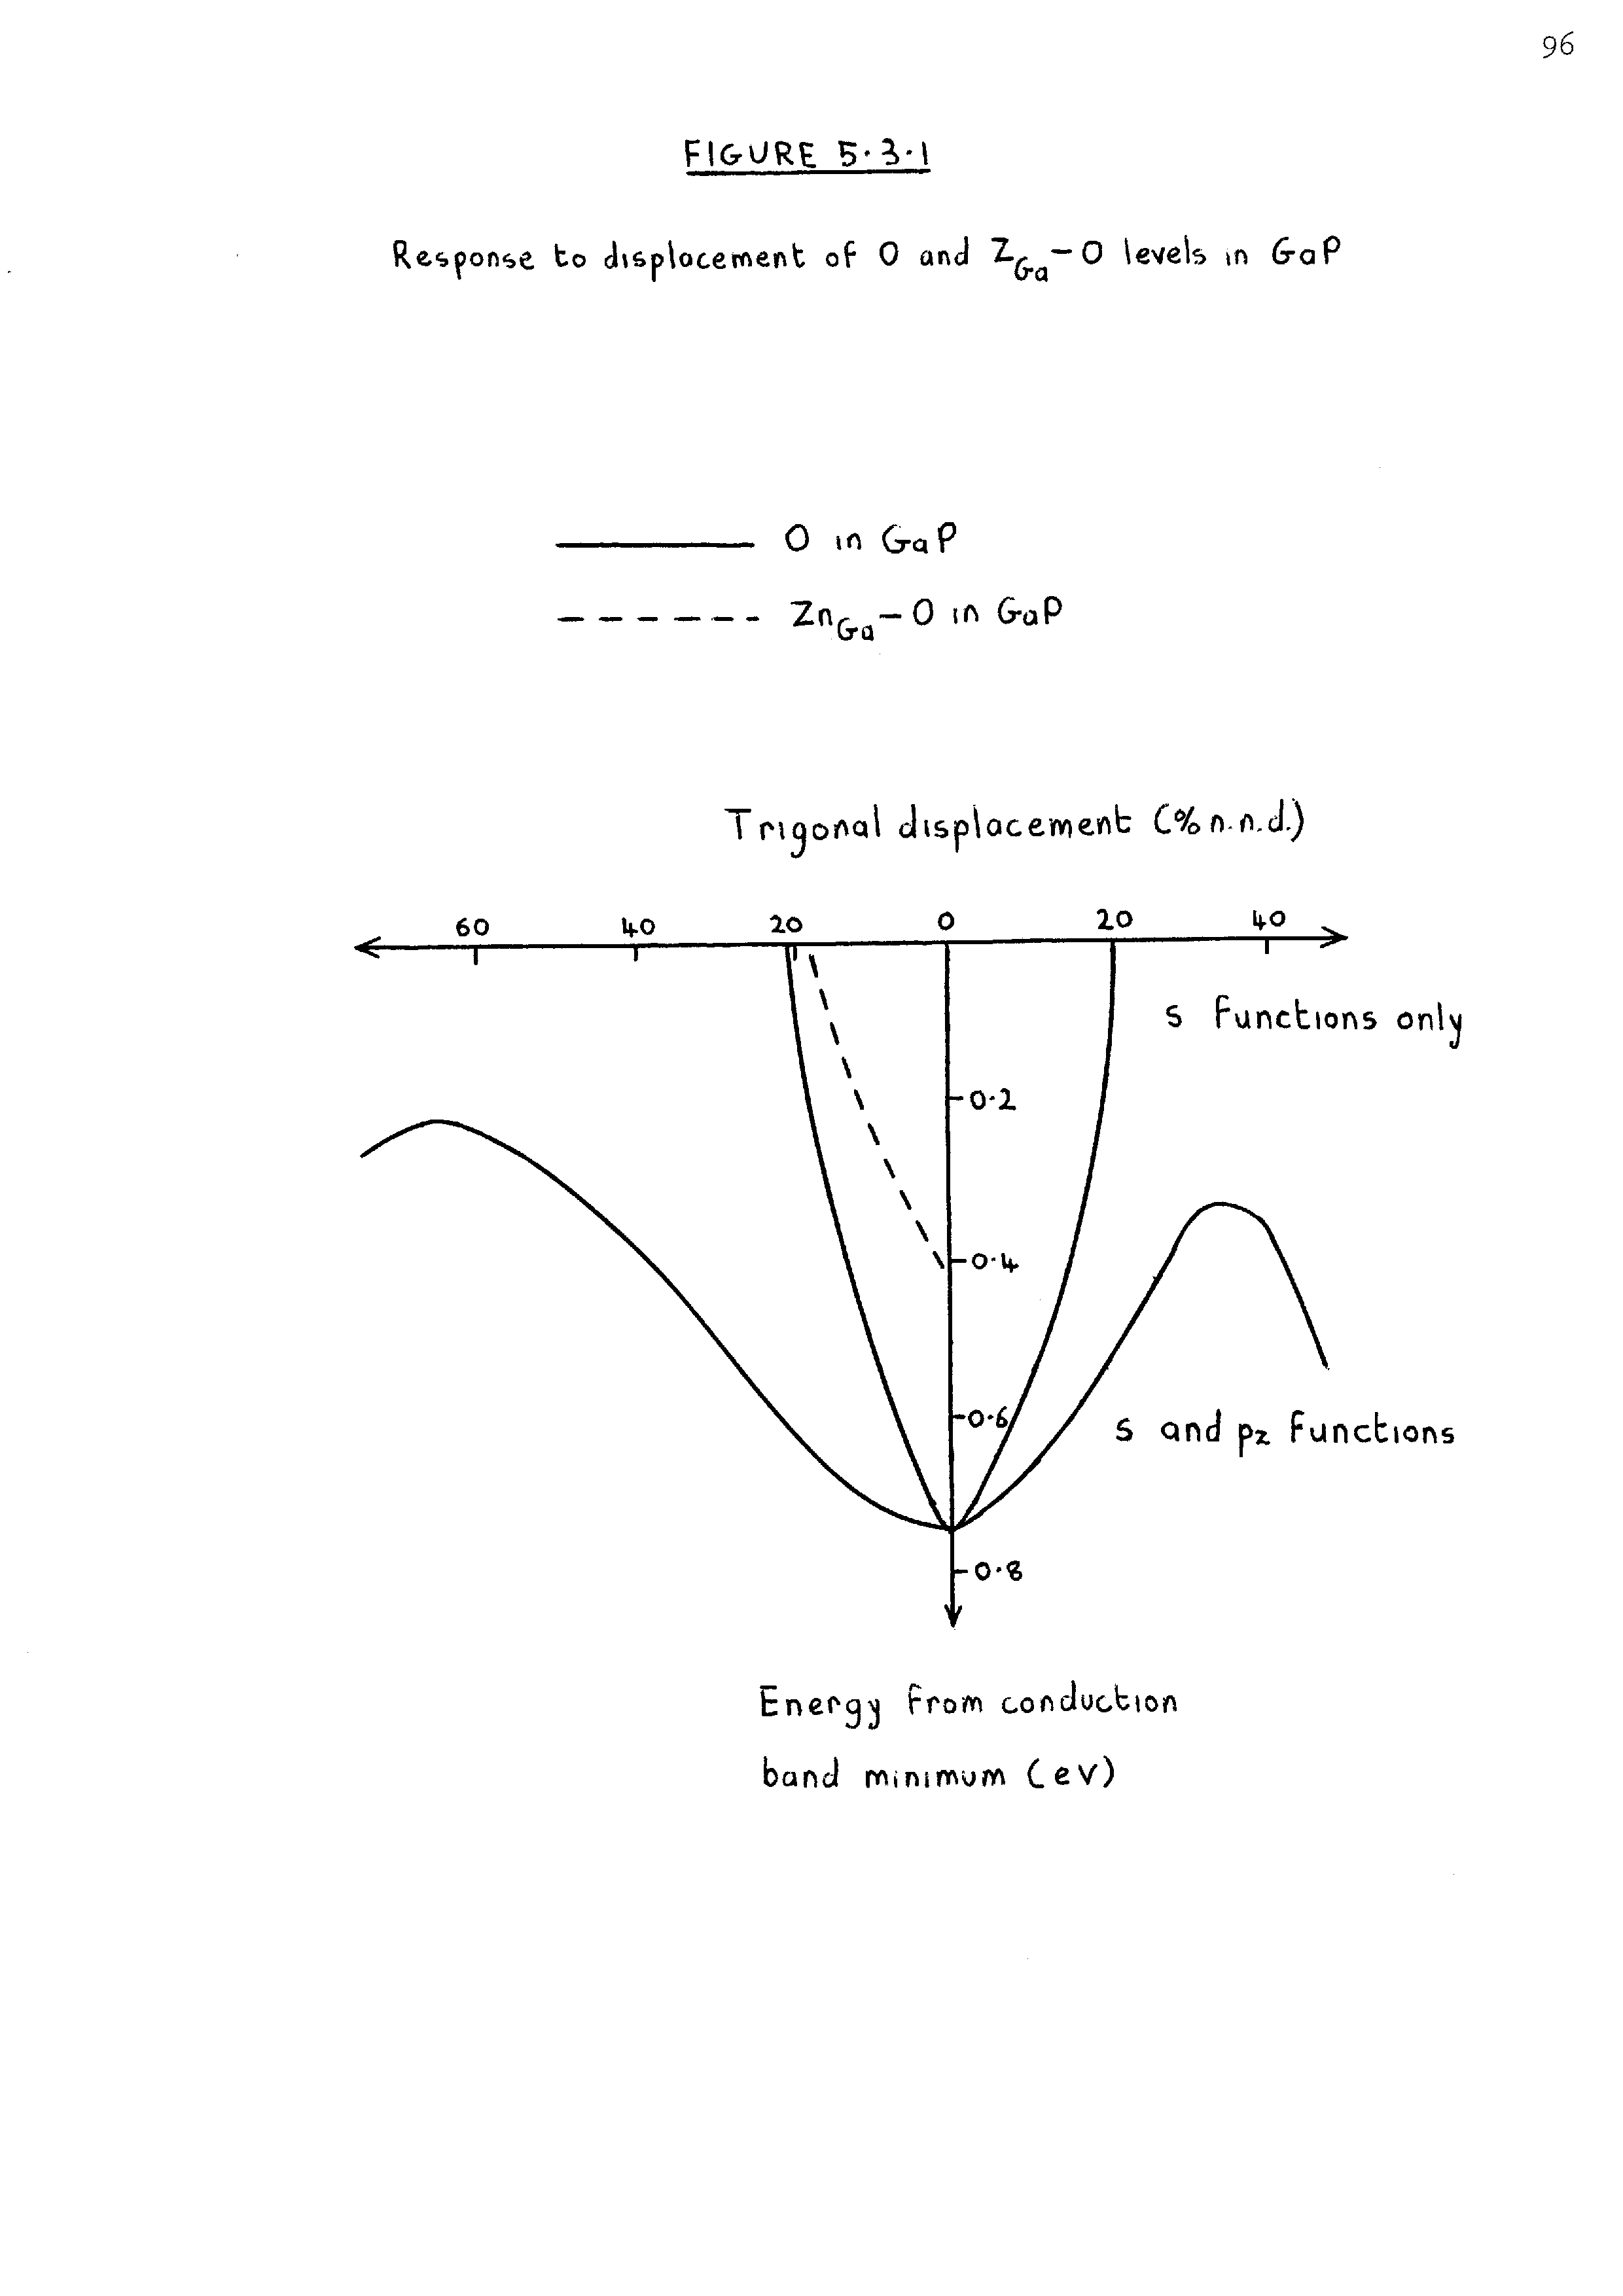 96
FIGURE 5.3.1
Response to displacement of O and Z_Ga-O levels in GaP
O in GaP
Zn_Ga-O in GaP
Trigonal displacement (% n.n.d.)
60 40 20 0 20 40
s functions only
0.2
0.4
0.6
s and pz functions
0.8
Energy from conduction
band minimum (eV)